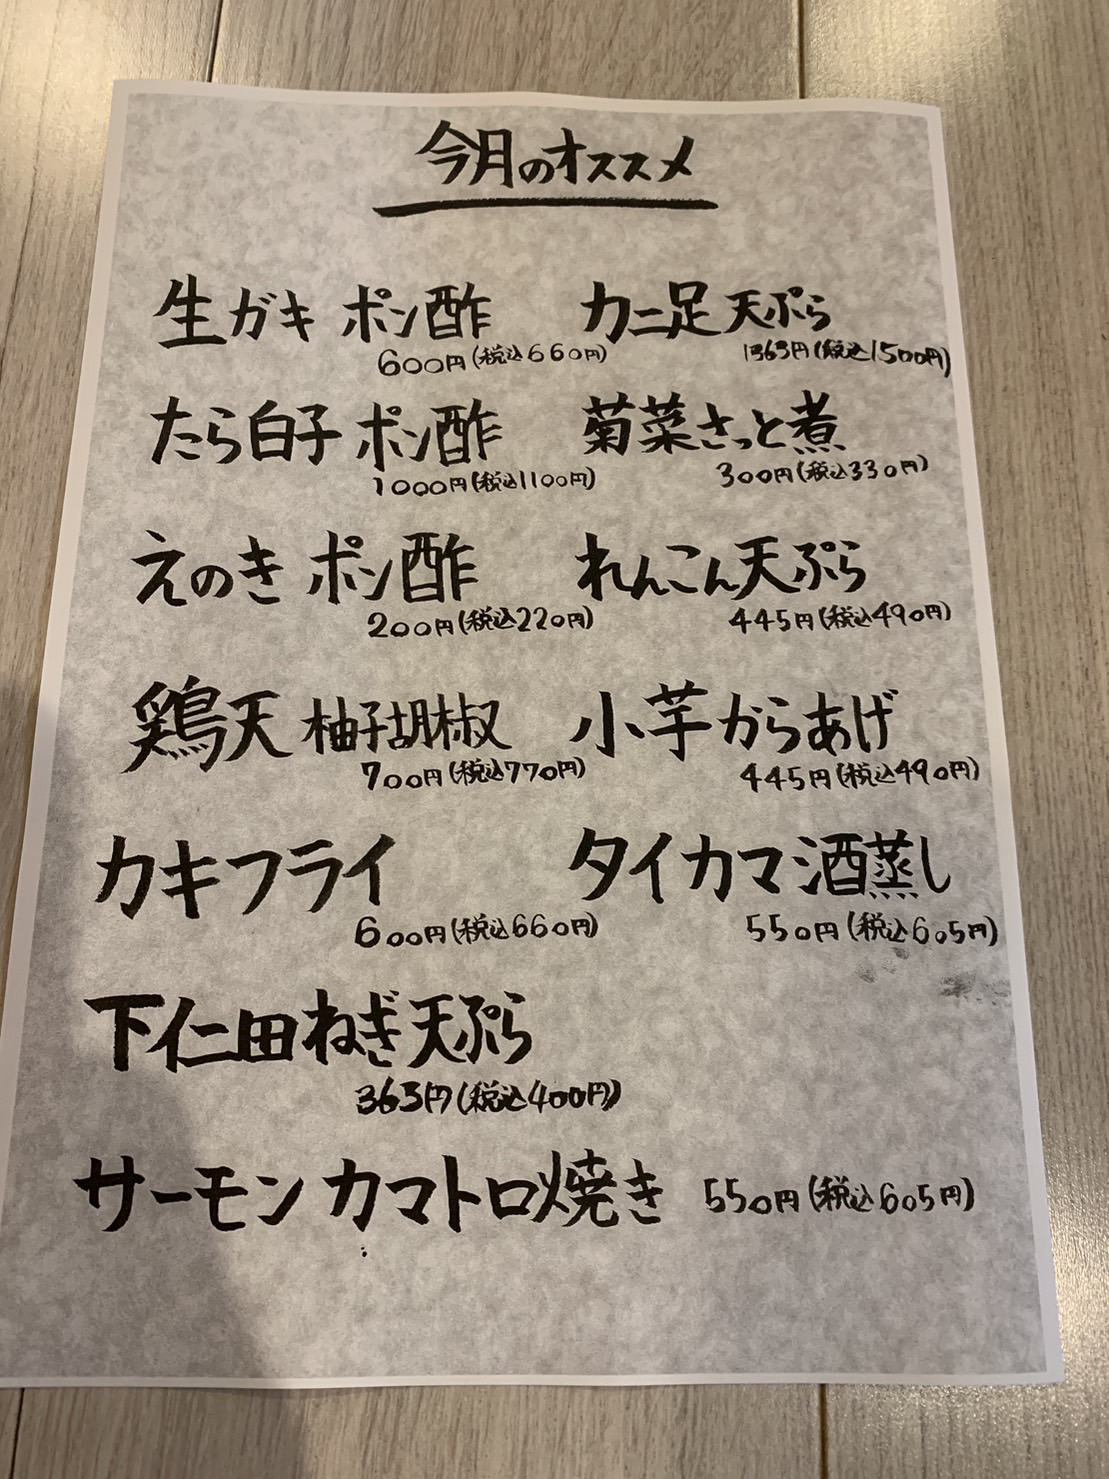 今月のオススメ
生ガキ ポン酢
600円(税込660円)
たら白子 ポン酢
1000円(税込1100円)
えのき ポン酢
200円(税込220円)
鶏天 柚子胡椒
700円(税込770円)
カキフライ
600円(税込660円)
下仁田ねぎ天ぷら
363円(税込400円)
カニ足天ぷら
1363円(税込1500円)
菊菜さっと煮
300円(税込330円)
れんこん天ぷら
445円(税込490円)
小芋からあげ
445円(税込490円)
タイカマ酒蒸し
550円(税込605円)
サーモンカマトロ焼き 550円(税込605円)